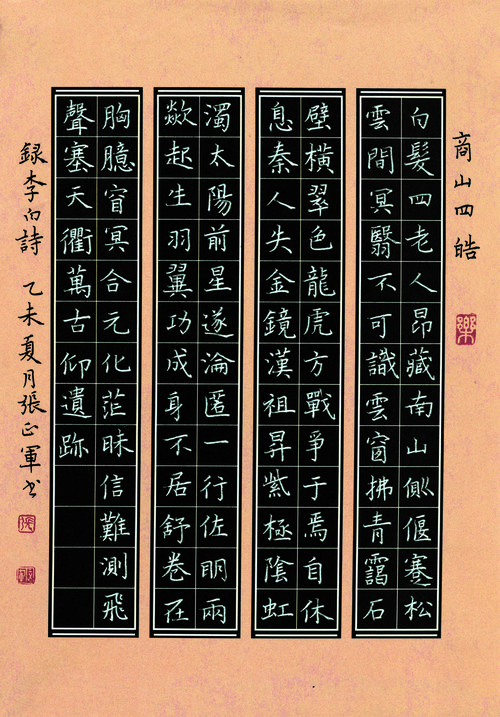 商山四皓
白髮四老人昂藏南山側偃蹇松
雲間冥翳不可識雲窗拂青靄石
壁橫翠色龍虎方戰爭于焉自休
息秦人失金鏡漢祖昇紫極陰虹
濁太陽前星遂淪匿一行佐明兩
欻起生羽翼功成身不居舒卷在
胸臆窅冥合元化茫昧信難測飛
聲塞天衢萬古仰遺跡
録李白詩 乙未夏月張正軍书